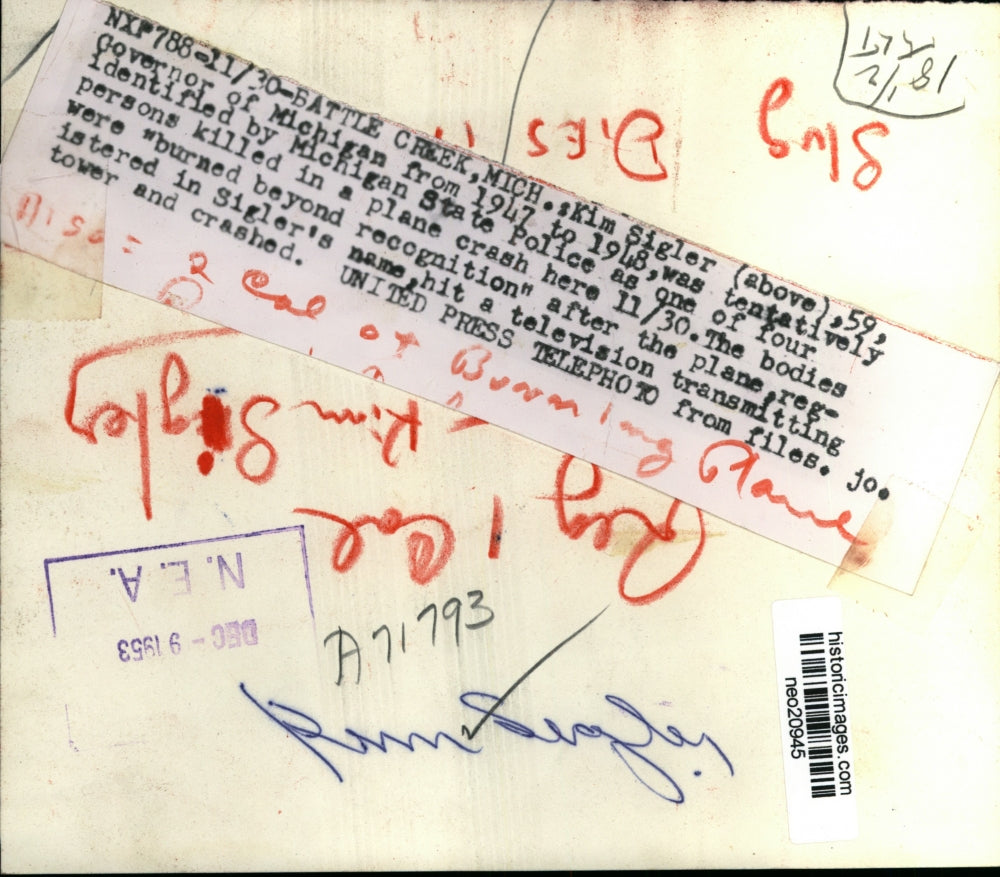 NXP788-11/30-BATTLE CREEK,MICH.:Kim Sigler (above),59,
Governor of Michigan from 1947 to 1948,was tentatively
identified by Michigan State Police as one of four
persons killed in a plane crash here 11/30.The bodies
were "burned beyond recognition" after the plane,reg-
istered in Sigler's name,hit a television transmitting
tower and crashed.
UNITED PRESS TELEPHOTO from files. jo.
2 Col of Burning Plane
Slug
Dies
Kim Sigler
Reg 1 Col
N.E.A.
DEC - 9 1953
A71793
historicimages.com
neo20945